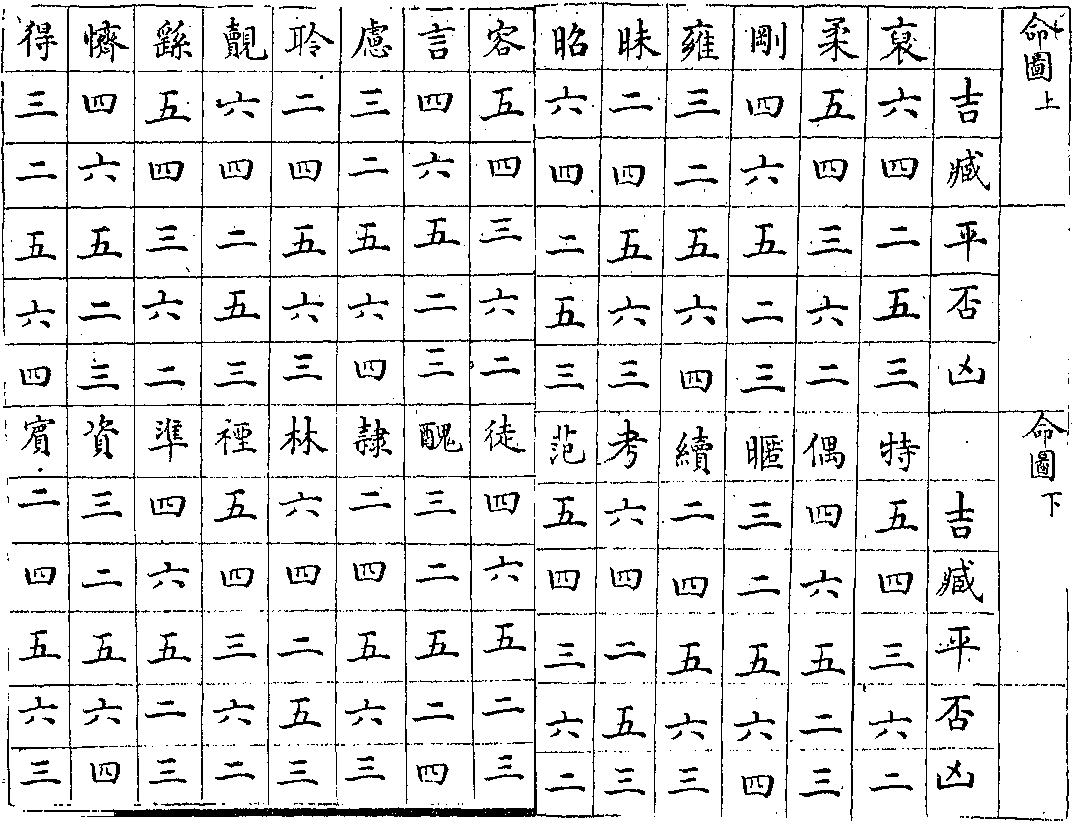 命圖上
吉臧平否凶
裒六四二五三
柔五四三六二
剛四六五二三
雍三二五六四
昧二四五六三
昭六四二五三
容五四三六二
言四六五二三
慮三二五六四
聆二四五六三
覿六四二五三
繇五四三六二
懠四六五二三
得三二五六四
命圖下
吉臧平否凶
特五四三六二
偶四六五二三
暱三二五六四
續二四五六三
考六四二五三
范五四三六二
徒四六五二三
醜三二五二四
隸二四五六三
林六四二五三
禋五四三六二
準四六五二三
資三二五六四
賓二四五六三